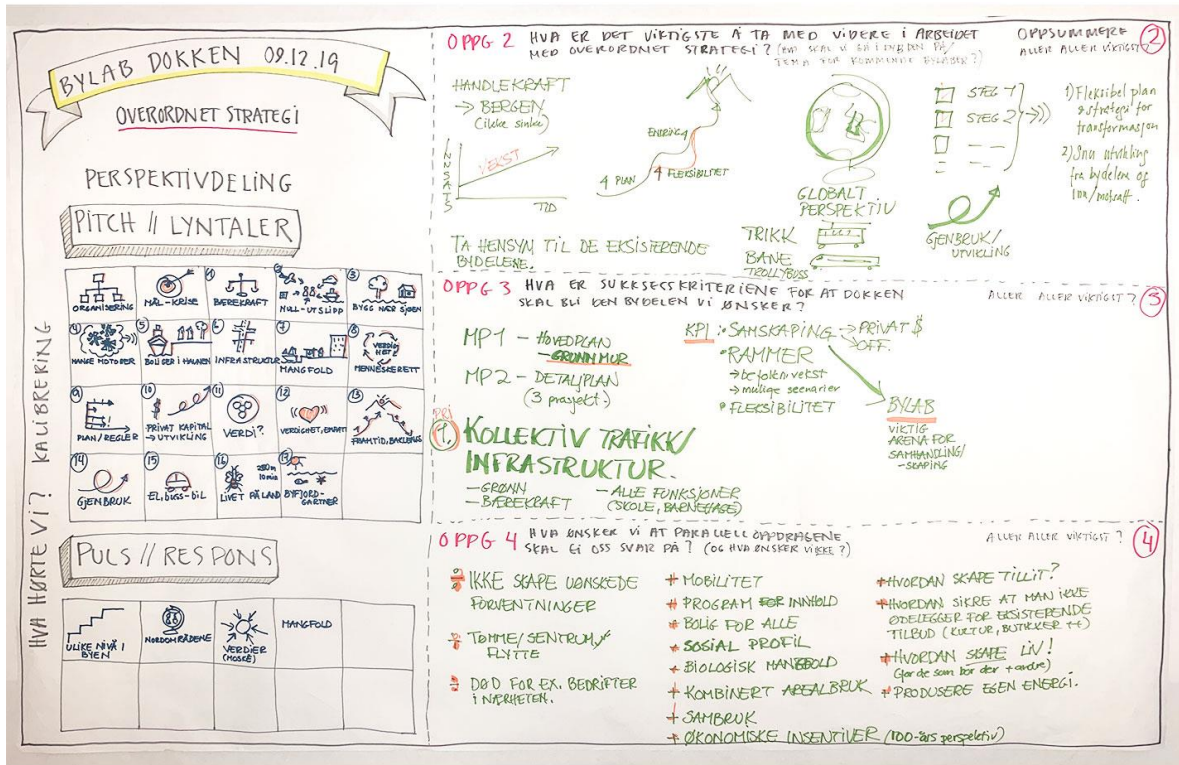 BYLAB DOKKEN 09.12.19
OVERORDNET STRATEGI
PERSPEKTIVDELING
PITCH // LYNTALER
HVA HØRTE VI? KALIBRERING
ORGANISERING
MÅL-KRISE
1 BÆREKRAFT
2 NULL-UTSLIPP
3 BYGG NÆR SJØEN
4 MANGE MOTODER
5 BOLIGER I HAVNEN
6 INFRASTRUKTUR
7 MANGFOLD
8 VERDIGHET
MENNESKERETT
9 PLAN/REGLER
10 $ PRIVAT KAPITAL
→ UTVIKLING
11 VERDI?
12 VERDIGHET, EMPATI
13 FRAMTID, BAKLENGS
14 GJENBRUK
15 EL, BUSS-BIL
16 LIVET PÅ LAND
250m
10 min
17 BYFJORD-
GARTNER
PULS // RESPONS
ULIKE NIVÅ I
BYEN
NORDOMRÅDENE
VERDIER
(MOSKÉ)
MANGFOLD
OPPG 2 HVA ER DET VIKTIGSTE Å TA MED VIDERE I ARBEIDET
MED OVERORDNET STRATEGI? (HVA SKAL VI GÅ I DYBDEN PÅ/
TEMA FOR KOMMENDE BYLABER?)
OPPSUMMERE
ALLER ALLER VIKTIGST
2
HANDLEKRAFT
→ BERGEN
(ikke sinke)
INNSATS
VEKST
TID
ENDRING
4 PLAN
4 FLEKSIBILITET
GLOBALT
PERSPEKTIV
TRIKK
BANE
TROLLYBUSS
STEG 1
STEG 2
GJENBRUK/
UTVIKLING
1) Fleksibel plan
& strategi for
transformasjon
2) Snu utvikling
fra bydelene og
inn/motsatt.
TA HENSYN TIL DE EKSISTERENDE
BYDELENE.
OPPG 3 HVA ER SUKKSESSKRITERIENE FOR AT DOKKEN
SKAL BLI DEN BYDELEN VI ØNSKER?
ALLER ALLER VIKTIGST?
3
MP1 – HOVEDPLAN
– GRØNN MUR
MP2 – DETALJPLAN
(3 prosjekt)
KPI: • SAMSKAPING → PRIVAT $
OFF.
• RAMMER
→ befolkn. vekst
→ mulige scenarier
• FLEKSIBILITET
BYLAB
VIKTIG
ARENA FOR
SAMHANDLING/
-SKAPING
PRI
1. KOLLEKTIV TRAFIKK/
INFRASTRUKTUR.
– GRØNN
– BÆREKRAFT
– ALLE FUNKSJONER
(SKOLE, BARNEHAGE)
OPPG 4 HVA ØNSKER VI AT PARALLELLOPPDRAGENE
SKAL GI OSS SVAR PÅ? (OG HVA ØNSKER VI IKKE?)
ALLER ALLER VIKTIGST?
4
IKKE SKAPE UØNSKEDE
FORVENTNINGER
TØMME/SENTRUM
FLYTTE
DØD FOR EX. BEDRIFTER
I NÆRHETEN.
+ MOBILITET
+ PROGRAM FOR INNHOLD
+ BOLIG FOR ALLE
+ SOSIAL PROFIL
+ BIOLOGISK MANGFOLD
+ KOMBINERT AREALBRUK
+ SAMBRUK
+ ØKONOMISKE INSENTIVER (100-års perspektiv)
+ HVORDAN SKAPE TILLIT?
+ HVORDAN SIKRE AT MAN IKKE
ØDELEGGER FOR EKSISTERENDE
TILBUD (KULTUR, BUTIKKER ++)
+ HVORDAN SKAPE LIV!
(for de som bor der + andre)
+ PRODUSERE EGEN ENERGI.